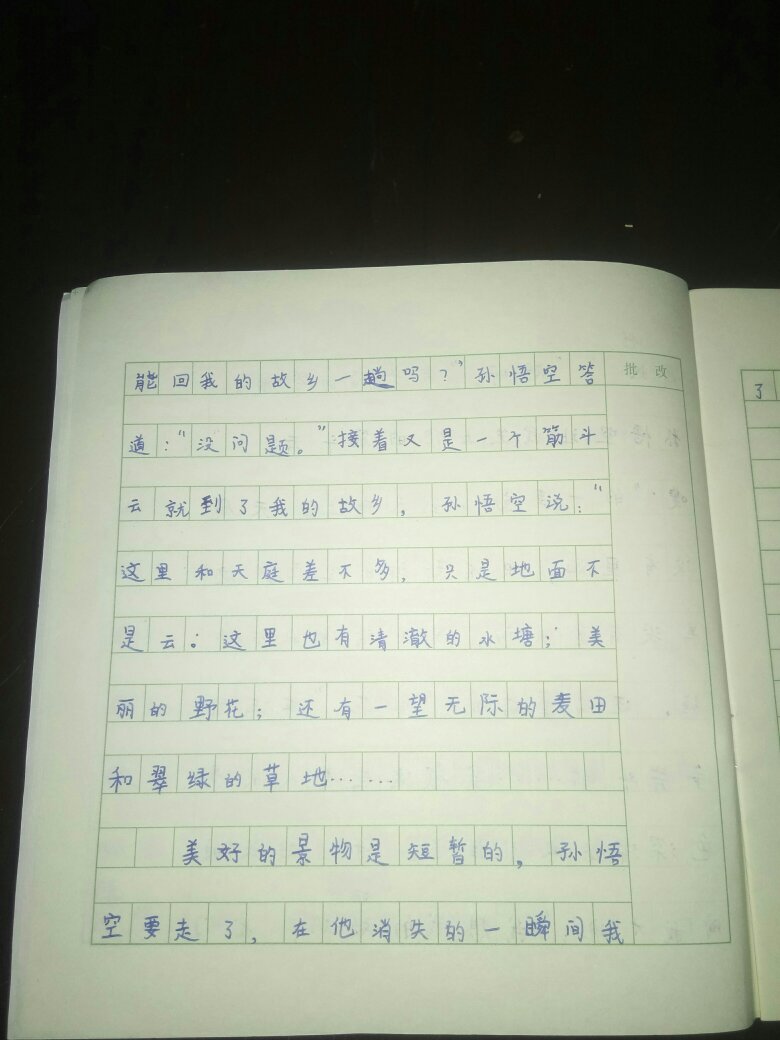 能回我的故乡一趟吗？”孙悟空答
批改
道：“没问题。”接着又是一个筋斗
云就到了我的故乡，孙悟空说：“
这里和天庭差不多，只是地面不
是云。这里也有清澈的水塘；美
丽的野花；还有一望无际的麦田
和翠绿的草地……
美好的景物是短暂的，孙悟
空要走了，在他消失的一瞬间我
了